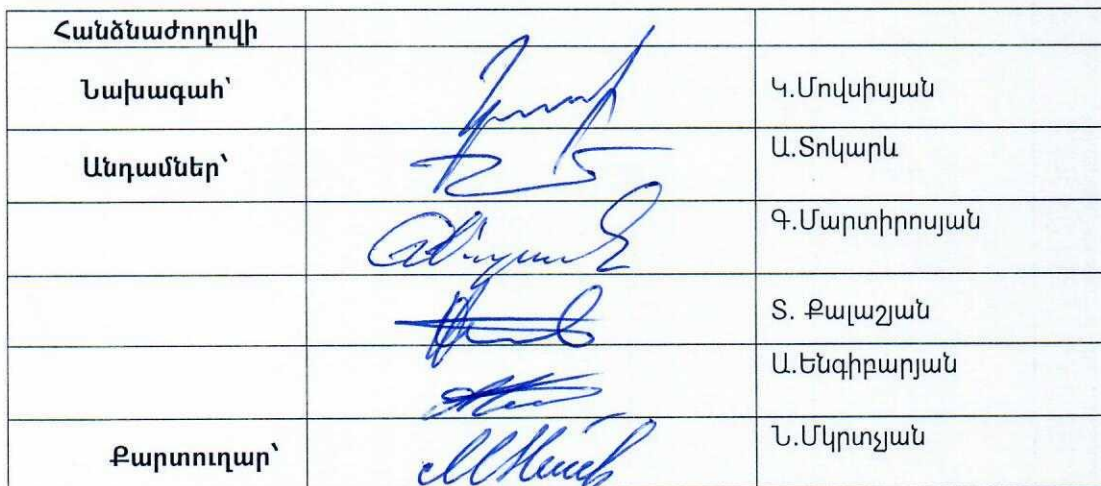 Հանձնաժողովի
Նախագահ՝ Կ.Մովսիսյան
Անդամներ՝ Ա.Տոկարև
Գ.Մարտիրոսյան
Տ. Քալաշյան
Ա.Ենգիբարյան
Քարտուղար՝ Ն.Մկրտչյան